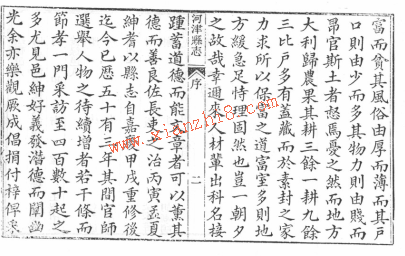 富而貧其風俗由厚而薄而其戶
口則由少而多其物力則由賤而
昂官斯土者惄焉憂之然而地方
大利歸農果其耕三餘一耕九餘
三比戶多有蓋藏而於素封之家
力求所以保富之道富室多則地
方緩急足恃理固然也豈一朝夕
之故哉幸邇來人材輩出科名接
河津縣志
序
二
踵蓄道德而能文章者可以薰其
德而善良佐長吏之治丙寅孟夏
紳耆以縣志自嘉慶甲戌重修後
迄今已歷五十有三年其間官師
選舉人物之待續增者若干條而
節孝一門采訪至四百數十起之
多尤見邑紳好義發潛德而闡幽
光余亦樂觀厥成倡捐付梓俾來